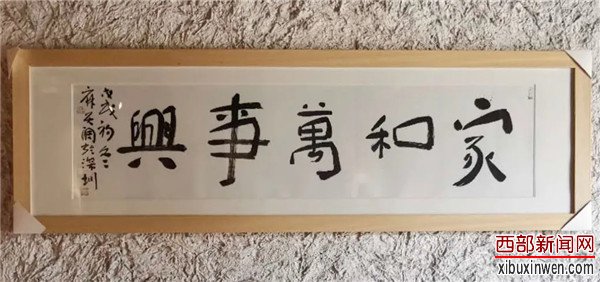 家和萬事興
戊戌初
於深圳
西部新闻网
xibuxinwen.com